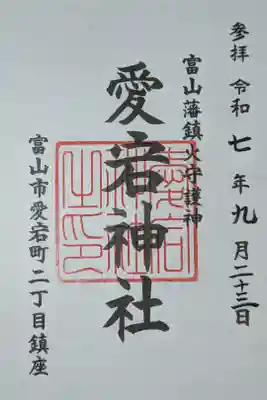 参拝 令和七年九月二十三日
富山藩鎮火守護神
愛宕神社
愛宕神社之印
富山市愛宕町二丁目鎮座